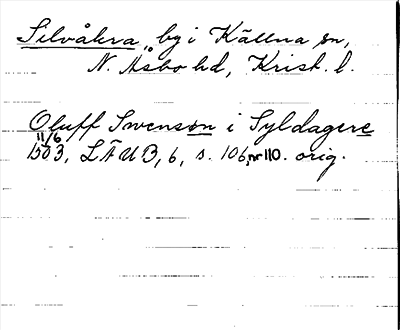 Silvåkra, by i Källna sn,
N. Åsbo hd, Krist. l.
Oluff Swenson i Syldagere
11/6
1503, LÄUB, 6, s. 106, nr 110. orig.